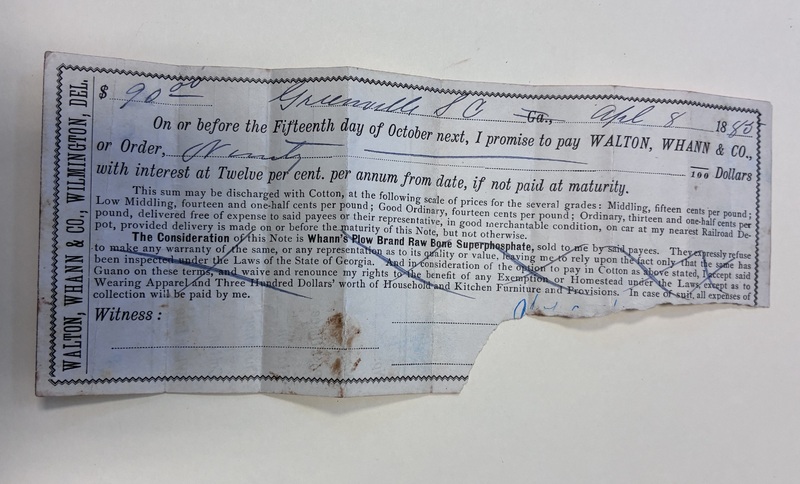 WALTON, WHANN & CO., WILMINGTON, DEL.
$ 90.00 Greenville S C Ga., Apl 8 1883
On or before the Fifteenth day of October next, I promise to pay WALTON, WHANN & CO.,
or Order, Ninety 100 Dollars
with interest at Twelve per cent. per annum from date, if not paid at maturity.
This sum may be discharged with Cotton, at the following scale of prices for the several grades: Middling, fifteen cents per pound;
Low Middling, fourteen and one-half cents per pound; Good Ordinary, fourteen cents per pound; Ordinary, thirteen and one-half cents per
pound, delivered free of expense to said payees or their representative, in good merchantable condition, on car at my nearest Railroad De-
pot, provided delivery is made on or before the maturity of this Note, but not otherwise.
The Consideration of this Note is Whann's Plow Brand Raw Bone Superphosphate, sold to me by said payees. They expressly refuse
to make any warranty of the same, or any representation as to its quality or value, leaving me to rely upon the fact only that the same has
been inspected under the Laws of the State of Georgia. And in consideration of the option to pay in Cotton as above stated, I accept said
Guano on these terms, and waive and renounce my rights to the benefit of any Exemption or Homestead under the Laws, except as to
Wearing Apparel and Three Hundred Dollars' worth of Household and Kitchen Furniture and Provisions. In case of suit, all expenses of
collection will be paid by me.
Witness: